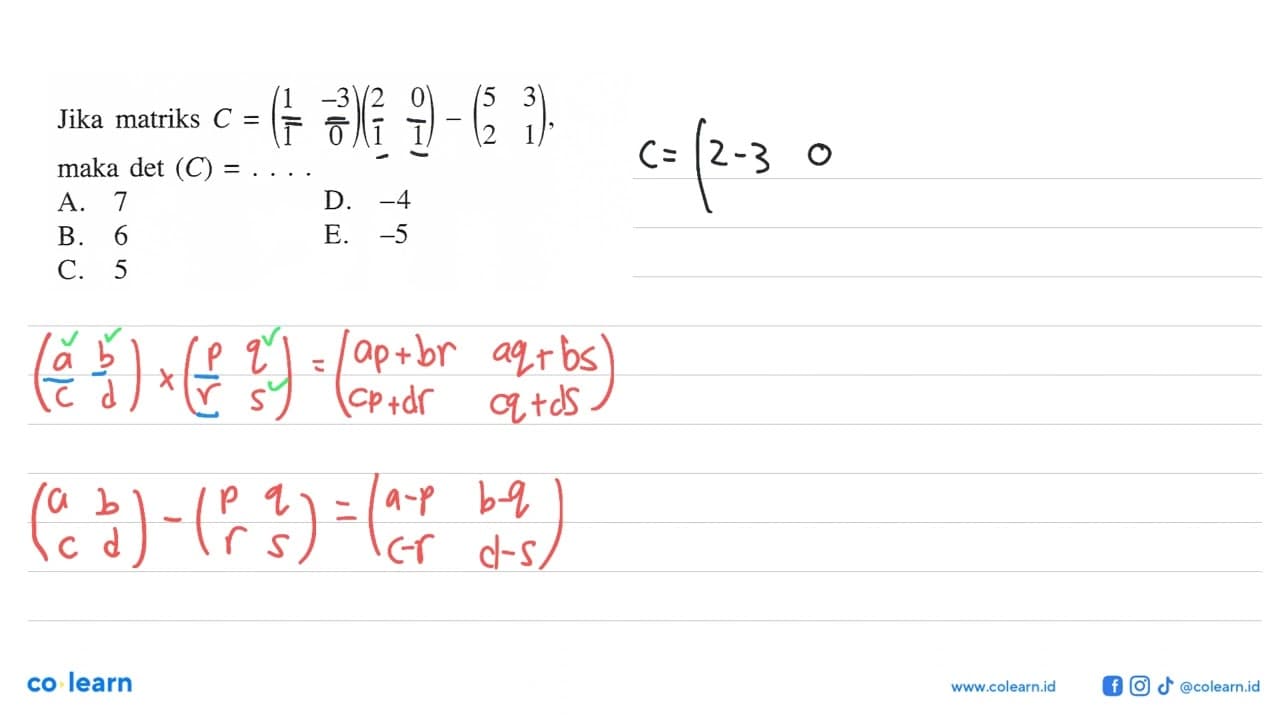 Jika matriks C = (1 -3 1 0)(2 0 1 1) - (5 3 2 1),
maka det (C) = . . . .
A. 7 D. -4
B. 6 E. -5
C. 5
C= (2-3 0
(a b c d) × (p q r s) = (ap+br aq+bs cp+dr cq+ds)
(a b c d) - (p q r s) = (a-p b-q c-r d-s)
co learn
www.colearn.id @colearn.id